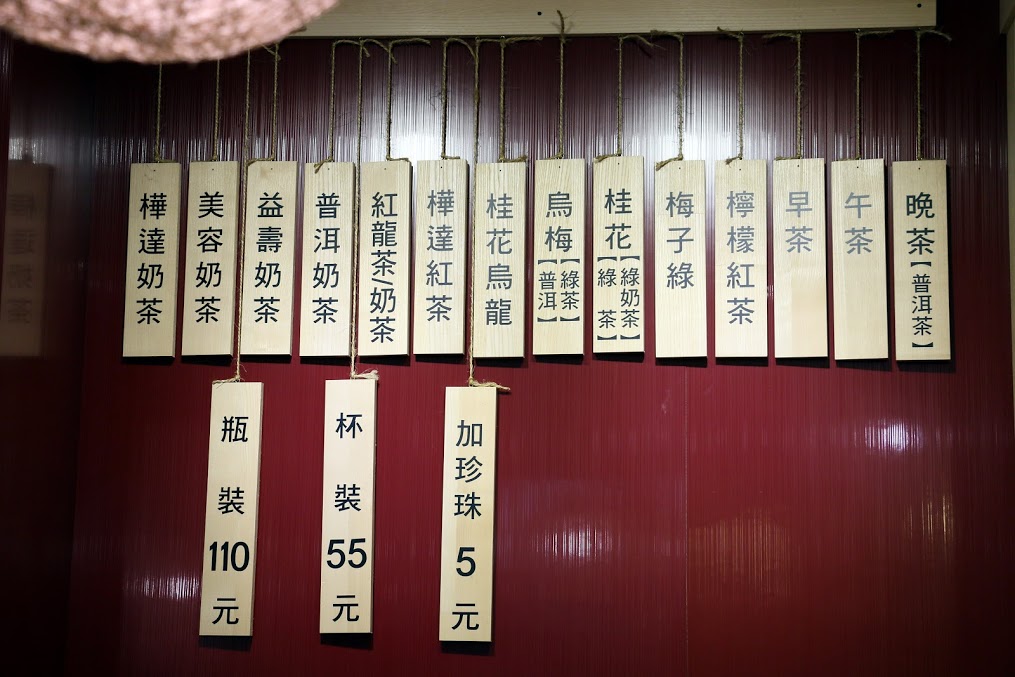 樺達奶茶
美容奶茶
益壽奶茶
普洱奶茶
紅龍茶/奶茶
樺達紅茶
桂花烏龍
烏梅【綠茶】
【普洱】
桂花【綠奶茶】
【綠茶】
梅子綠
檸檬紅茶
早茶
午茶
晚茶【普洱茶】
瓶裝110元
杯裝55元
加珍珠5元